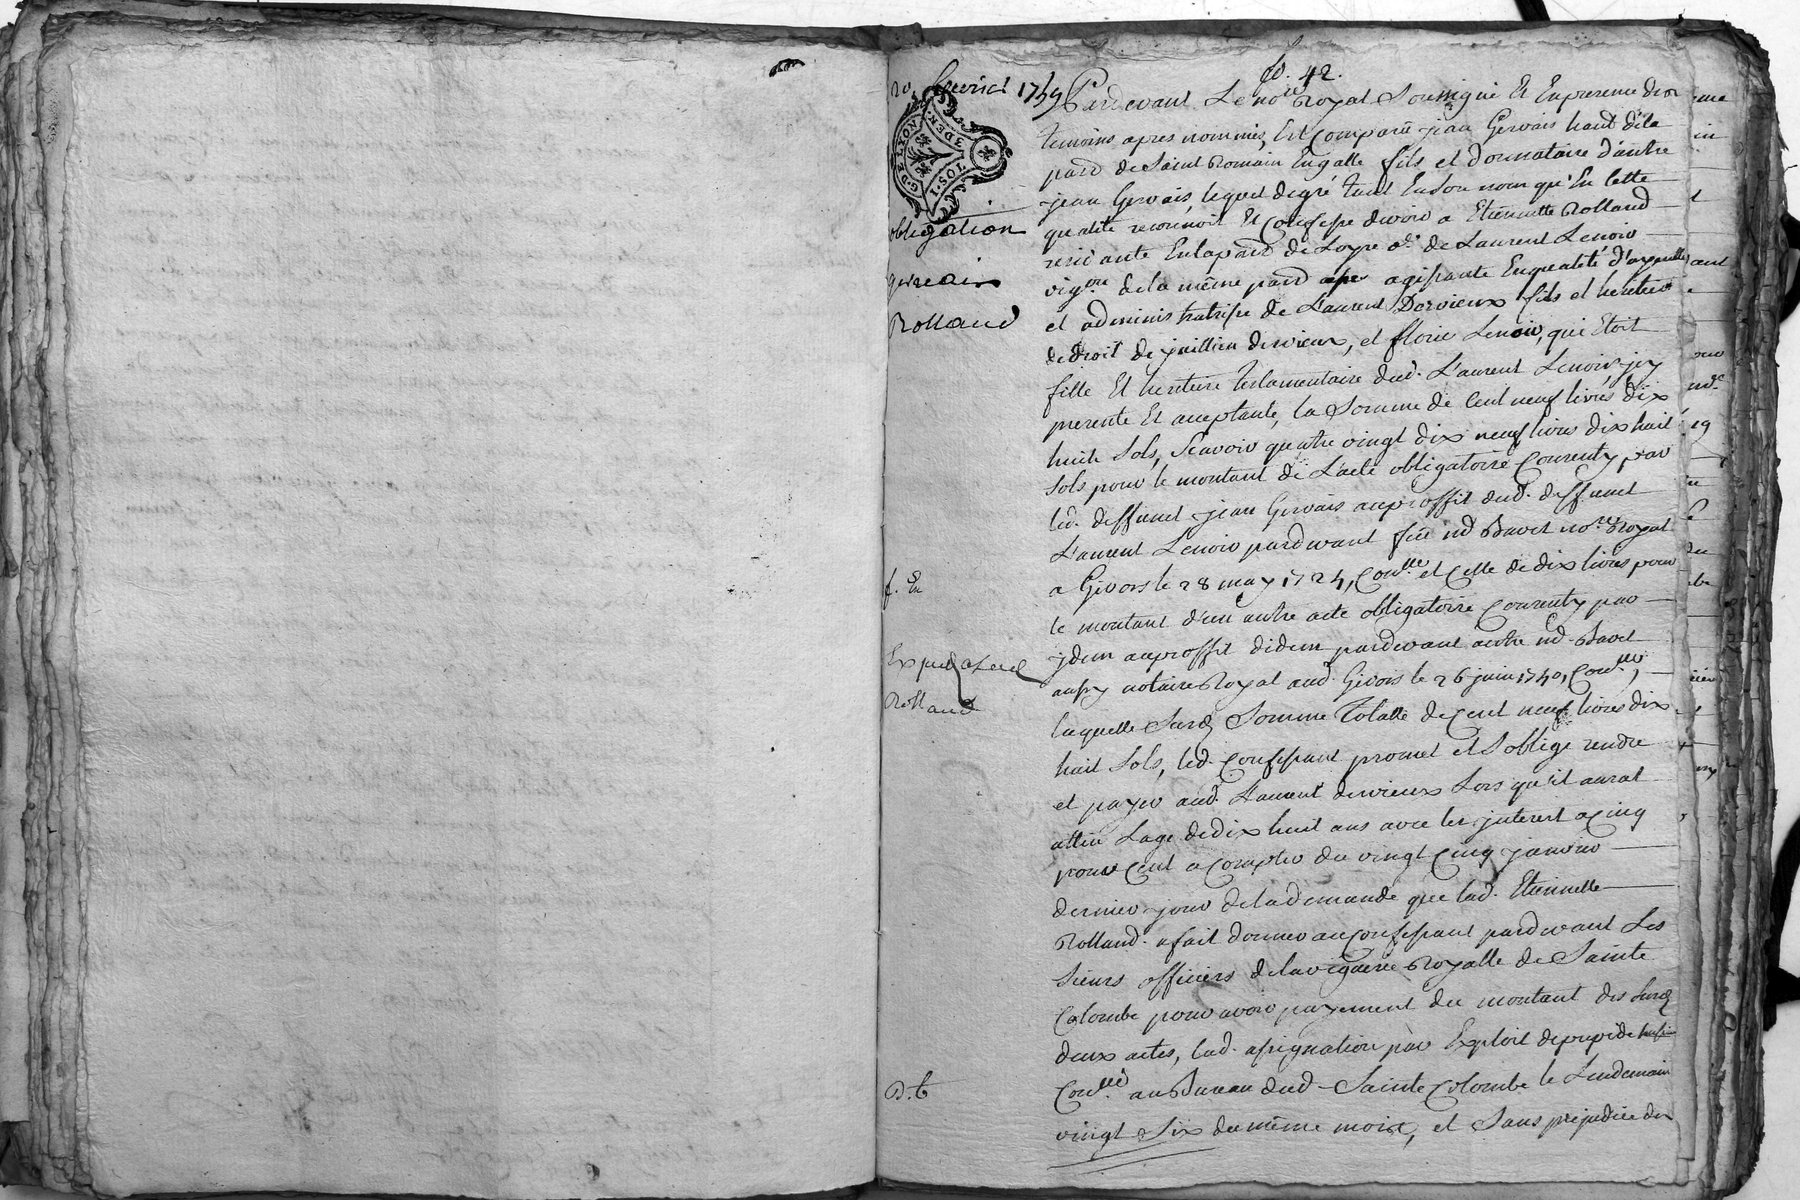 fo. 42.
20 fevrier 1759
G. DE LYON
3 DEN.
1. SOL
obligation
gervais
Rolland
f. En
Exped
Rolland
D. t
Pardevant Le no.re Royal Soussigné Et En presence des
temoins apres nommés, Est Comparû jean Gervais hant de la
parr de Saint Romain Engalle fils et donnataire d'autre
jean Gervais, lequel de gré tant En Son nom qu'En Cette
qualité reconnoit Et Confesse devoir a Etiennette Rolland
residante En la parr de Loyre de Laurent Lenoir
vig.on de la même parr agissante En qualité d'ayeulle
et administratrisse de Laurent Dervieux fils et heritier
de droit de jullien dervieux, et florie Lenoir, qui Etoit
fille Et heritiere testamentaire dud. Laurent Lenoir jcy
presente Et acceptante, la Somme de Cent neuf livres dix
huit Sols, Scavoir quatre vingt dix neuf livres dix huit
Sols pour le montant de L'acte obligatoire Consenty par
led. deffunct jean Gervais auproffit dud. deffunct
Laurent Lenoir pardevant feu md Bavet no.re Royal
a Givors le 28 may 1724, Con.llé et Celle de dix livres pour
le montant d'un autre acte obligatoire Consenty par
jdem auproffit didem pardevant autre md. Bavet
aussy notaire Royal aud. Givors le 26 juin 1740, Con.llé,
laquelle Susd. Somme totalle de Cent neuf livres dix
huit Sols, led. Confessant promet et S'oblige rendre
et payer aud. Laurent dervieux Lors qu'il aurat
attin Lage de dix huit ans avec les jnterest a Cinq
pour Cent a Compter du vingt Cinq janvier
dernier jour de la demande que lad. Etiennette
Rolland. a fait donner au Confessant pardevant Les
Sieurs officiers de la viguerie Royalle de Sainte
Colombe pour avoir payement du montant des Susd.
deux actes, lad. assignation par Exploit de
Con.llé au Bureau dud. Sainte Colombe le Lendemain
vingt Six du même mois, et Sans prejudice des